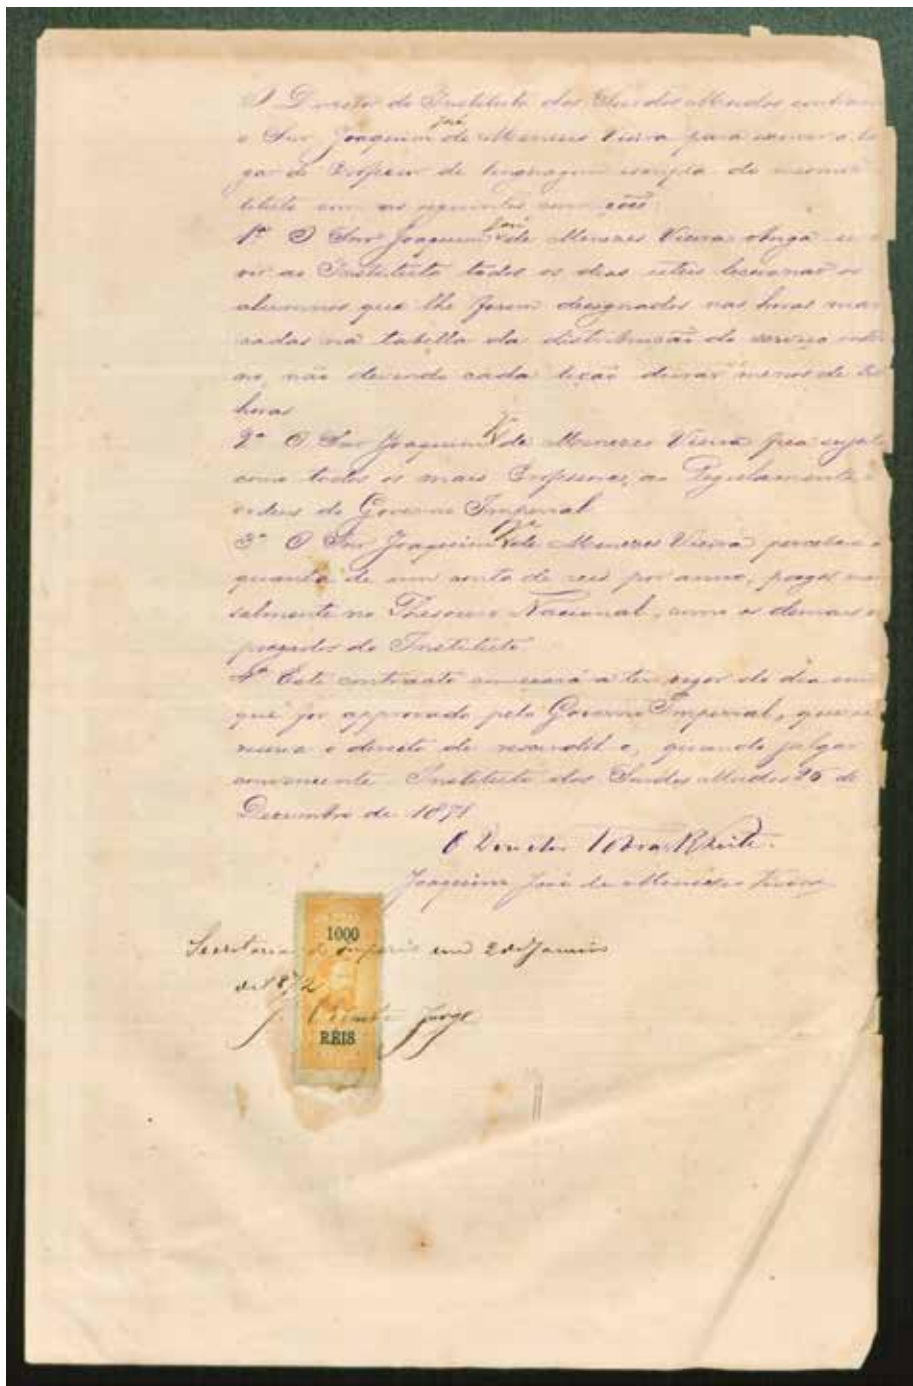 O Director do Instituto dos Surdos Mudos contracta
o Snr Joaquim José de Menezes Vieira para exercer o lo
gar de Professor de linguagem escripta do mesmo
tituto com as seguintes condições:
1ª O Snr Joaquim José de Menezes Vieira obriga se a
vir ao Instituto todos os dias uteis leccionar os
alumnos que lhe forem designados nas horas mar
cadas na tabella da distribuição do serviço inter
no, não devendo cada lição durar menos de
horas
2ª O Snr Joaquim Jé de Menezes Vieira fica sujeito
como todos os mais Professores, ao Regulamento e
ordens do Governo Imperial
3ª O Snr Joaquim Jé de Menezes Vieira perceberá a
quantia de um conto de reis por anno, pagos men
salmente no Thesouro Nacional, como os demais em
pregados do Instituto.
4ª Este contracto começará a ter vigor do dia em
que for approvado pelo Governo Imperial, que se
reserva o direito de rescindil o, quando julgar
conveniente Instituto dos Surdos Mudos 26 de
Dezembro de 1871
O Director Tobias R Leite.
Joaquim José de Menezes Vieira
1000
Secretaria do Imperio em 2 de Janeiro
de 1872
Jorge
REIS